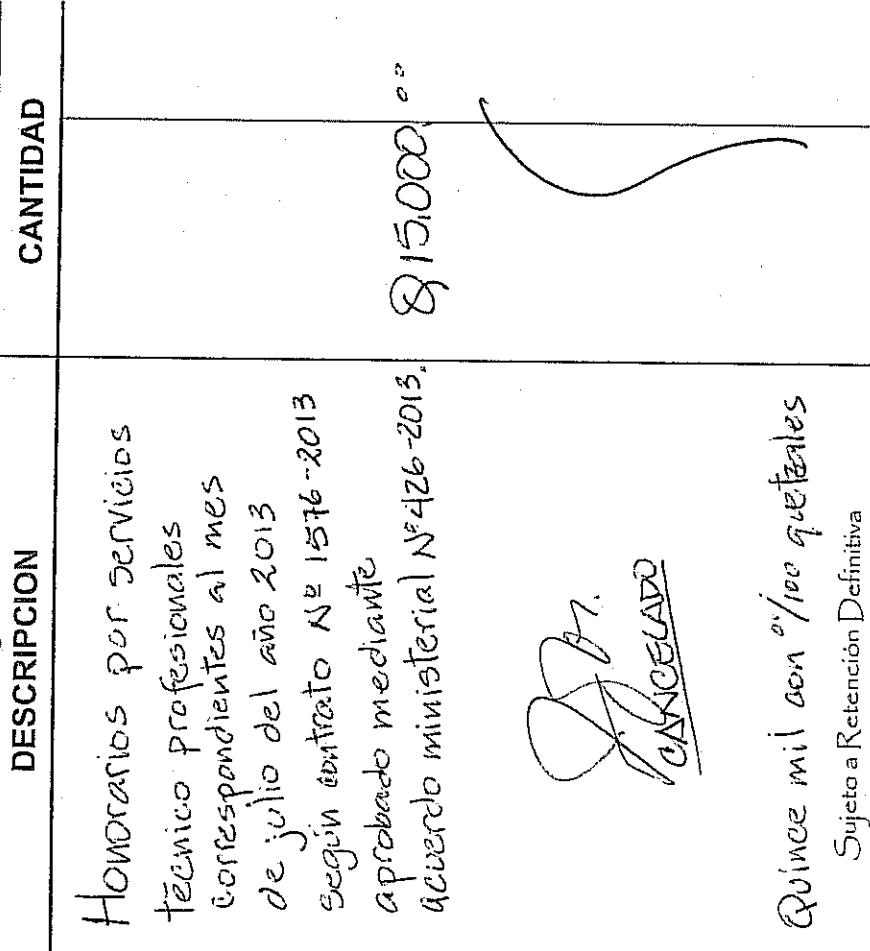 DESCRIPCION
CANTIDAD
Honorarios por servicios
técnico profesionales
correspondientes al mes
de julio del año 2013
según contrato Nº 1576-2013
aprobado mediante
acuerdo ministerial Nº 426-2013.
Q15,000.00
CANCELADO
Quince mil con 00/100 quetzales
Sujeto a Retención Definitiva